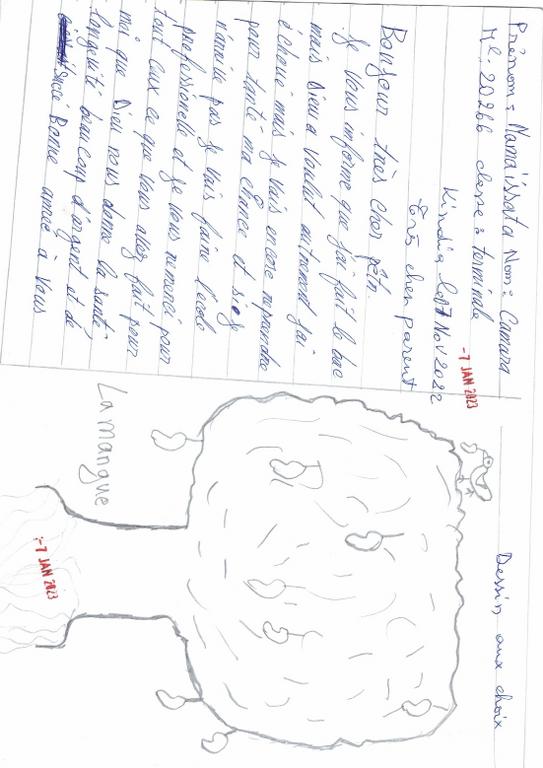 Prénom : Namaïssata Nom : Camara
Me: 20266 classe : terminale
Kindia le 07 Nov 2022
-7 JAN 2023
très cher parent
Bonjour très cher
Je vous informe que j'ai fait le bac
mais Dieu a voulut autrement j'ai
échoué mais je vais encore reprandre
pour tanté ma chance et si
n'arrive pas je vais faire l'école
professionelle et je vous remerci pour
tout ceux ce que vous avez fait pour
moi que Dieu nous donne la santé
longevité beaucoup d'argent et de
succè Bonne année à vous
Dessin aux choix
La mangue
-7 JAN 2023